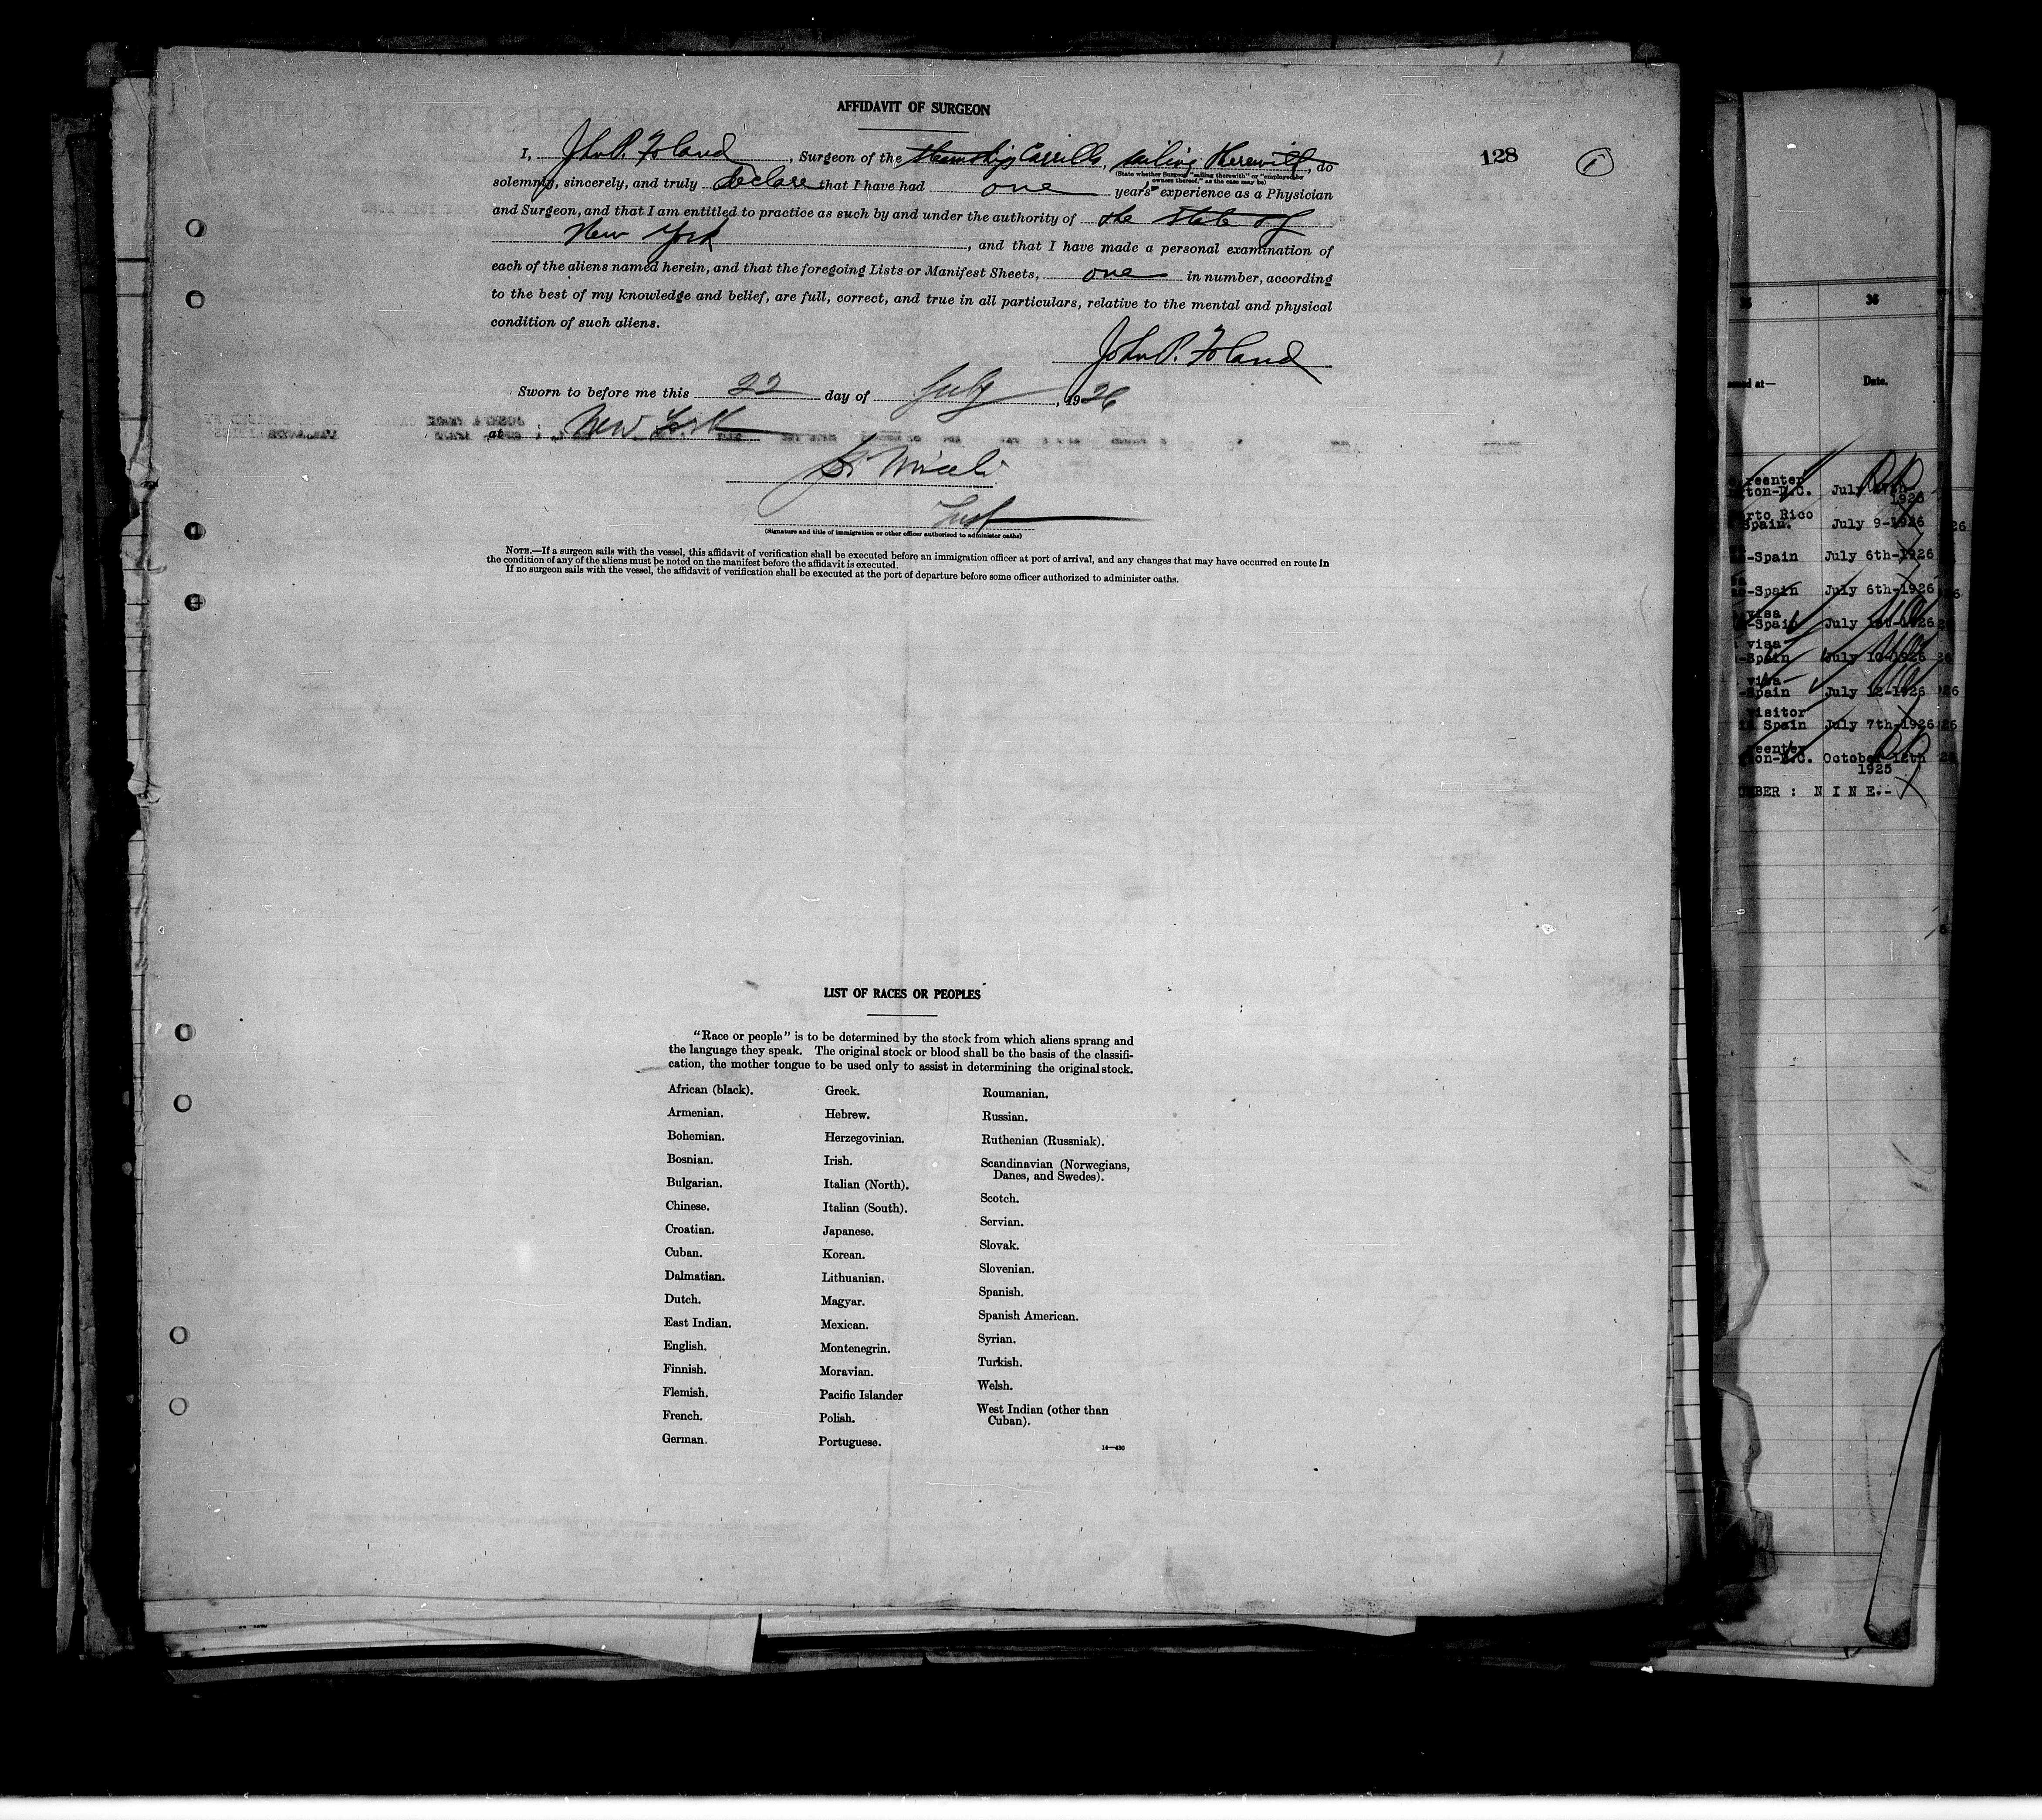 AFFIDAVIT OF SURGEON
128
1
I, John P. Foland, Surgeon of the steamship Carrillo, sailing therewith, do
(State whether Surgeon "sailing therewith" or "employed by
owners thereof," as the case may be)
solemnly, sincerely, and truly declare that I have had one year's experience as a Physician
and Surgeon, and that I am entitled to practice as such by and under the authority of the State of
New York, and that I have made a personal examination of
each of the aliens named herein, and that the foregoing Lists or Manifest Sheets, one in number, according
to the best of my knowledge and belief, are full, correct, and true in all particulars, relative to the mental and physical
condition of such aliens.
John P. Foland
Sworn to before me this 22 day of July, 1926
at New York
Insp
(Signature and title of immigration or other officer authorized to administer oaths)
NOTE.—If a surgeon sails with the vessel, this affidavit of verification shall be executed before an immigration officer at port of arrival, and any changes that may have occurred en route in
the condition of any of the aliens must be noted on the manifest before the affidavit is executed.
If no surgeon sails with the vessel, the affidavit of verification shall be executed at the port of departure before some officer authorized to administer oaths.
LIST OF RACES OR PEOPLES
"Race or people" is to be determined by the stock from which aliens sprang and
the language they speak. The original stock or blood shall be the basis of the classifi-
cation, the mother tongue to be used only to assist in determining the original stock.
African (black).
Armenian.
Bohemian.
Bosnian.
Bulgarian.
Chinese.
Croatian.
Cuban.
Dalmatian.
Dutch.
East Indian.
English.
Finnish.
Flemish.
French.
German.
Greek.
Hebrew.
Herzegovinian.
Irish.
Italian (North).
Italian (South).
Japanese.
Korean.
Lithuanian.
Magyar.
Mexican.
Montenegrin.
Moravian.
Pacific Islander
Polish.
Portuguese.
Roumanian.
Russian.
Ruthenian (Russniak).
Scandinavian (Norwegians,
Danes, and Swedes).
Scotch.
Servian.
Slovak.
Slovenian.
Spanish.
Spanish American.
Syrian.
Turkish.
Welsh.
West Indian (other than
Cuban).
14—430
36
Date.
reenter
ton-D.C. July
1926
rto Rico
Spain. July 9-1926
-Spain July 6th-1926
-Spain July 6th-1926
visa
-Spain July 1st-1926
visa
-Spain July 10-1926
visa
-Spain July 12-1926
visitor
Spain July 7th-1926
reenter
on-D.C. October 12th
1925
MBER : N I N E.-